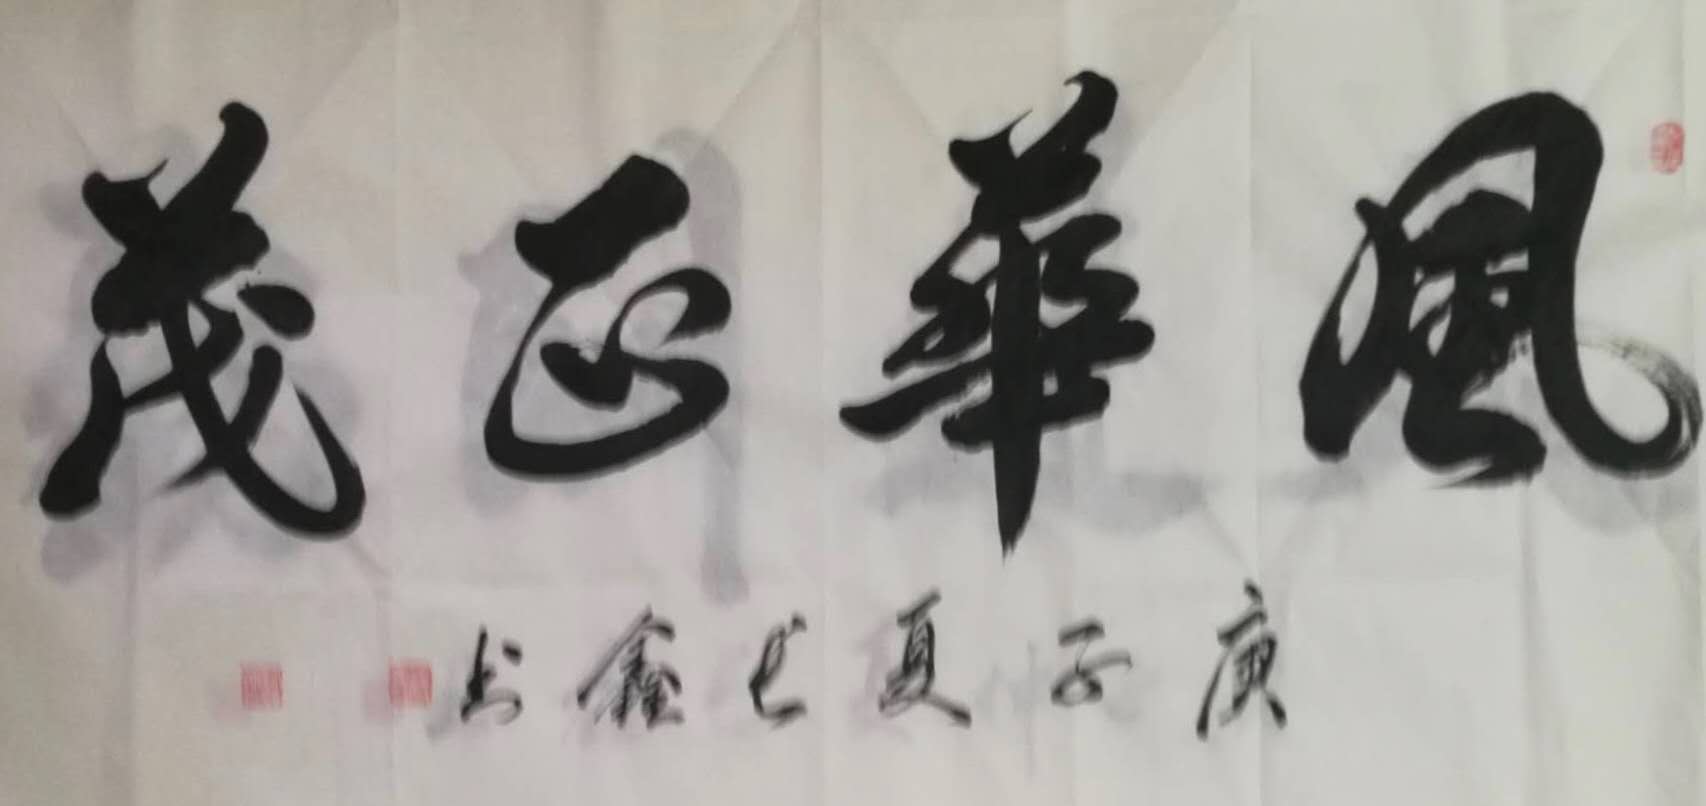 風華正茂
庚子夏长鑫书